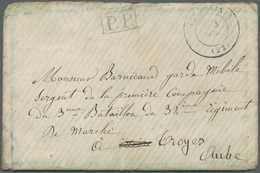 P.P.
(22)
Monsieur Barnicaud garde Mobile
Sergent de la première Compagnie
du 3ème Bataillon du 32ème Régiment
De Marche
à Troyes
Aube